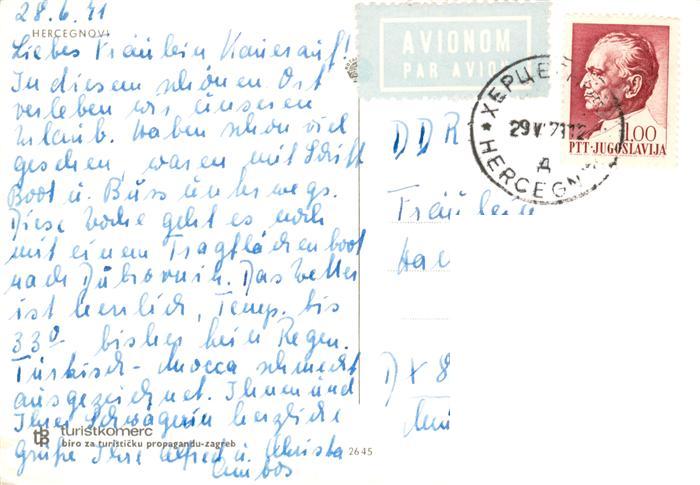 28.6.71
HERCEGNOVI
Liebes Fräulein
In diesem schönen Ort
verleben wir unseren
Urlaub. Haben schon viel
gesehen, waren mit Schiff
Boot u. Buss unterwegs.
Diese Woche geht es noch
mit einem Tragflächenboot
nach Dubrovnik. Das Wetter
ist herrlich, Temp. bis
33° bisher kein Regen.
Türkisch-Mocca schmeckt
ausgezeichnet. Ihnen und
Ihrer Schwägerin herzliche
Grüße Ihre Alfred u. Christa
turistkomerc
biro za turističku propagandu-zagreb
2645
AVIONOM
PAR AVION
ХЕРЦЕГ
HERCEGN
Д
1.00
PTT-JUGOSLAVIJA
DDR
Fräulein